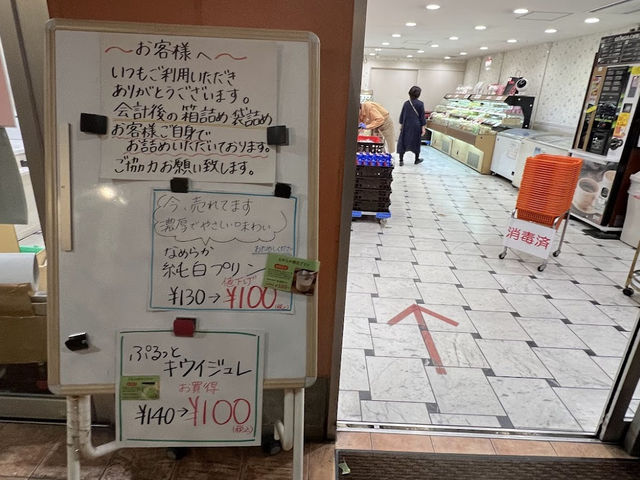 ～お客様へ～
いつもご利用いただき
ありがとうございます。
会計後の箱詰め袋詰め
お客様ご自身で
お詰めいただいております。
ご協力お願い致します。
今、売れてます
濃厚でやさしい味わい
なめらか
純白プリン
¥130→¥100(税込)
ぷるっと
キウイジュレ
お買得
¥140→¥100
(税込)
消毒済